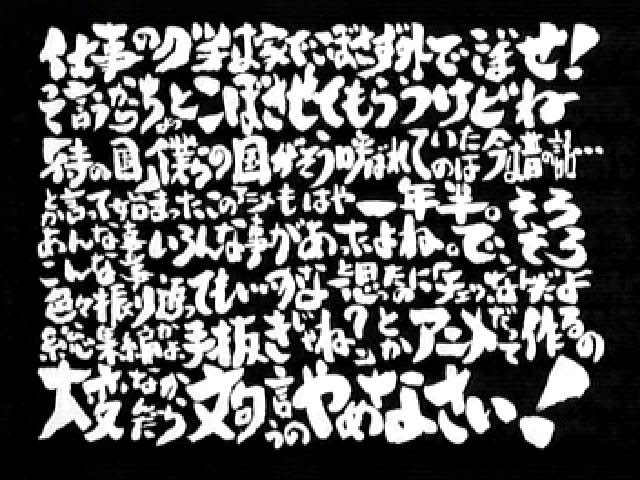 仕事のグチは家でこぼさず外でこぼせ!
そう言うからちょとこぼさせてもらうけどね
「侍の国」僕らの国がそう呼ばれていたのは今は昔の話…
と言って始まったこのアニメもはや一年半。そろ
あんな事いろんな事があったよね。で、そろ
こんな事。色々振り返っていーのかなと思ったのに「チェッ、なんだよ
総集編かよ手抜きじゃね?」とかアニメだって作るの
大変なんだから文句言うのやめなさい!